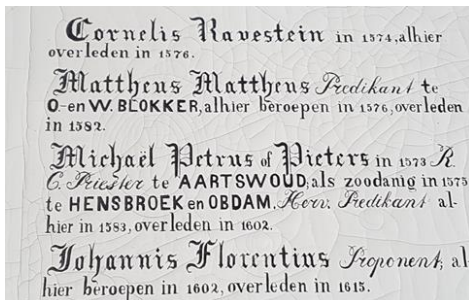 Cornelis Ravestein in 1574, alhier
overleden in 1576.
Mattheus Mattheus Predikant te
O.-en W. BLOKKER, alhier beroepen in 1576, overleden
in 1582.
Michaël Petrus of Pieters in 1573 R.
C. Priester te AARTSWOUD; als zoodanig in 1575
te HENSBROEK en OBDAM. Herv. Predikant al-
hier in 1583, overleden in 1602.
Johannis Florentius Proponent, al-
hier beroepen in 1602, overleden in 1615.